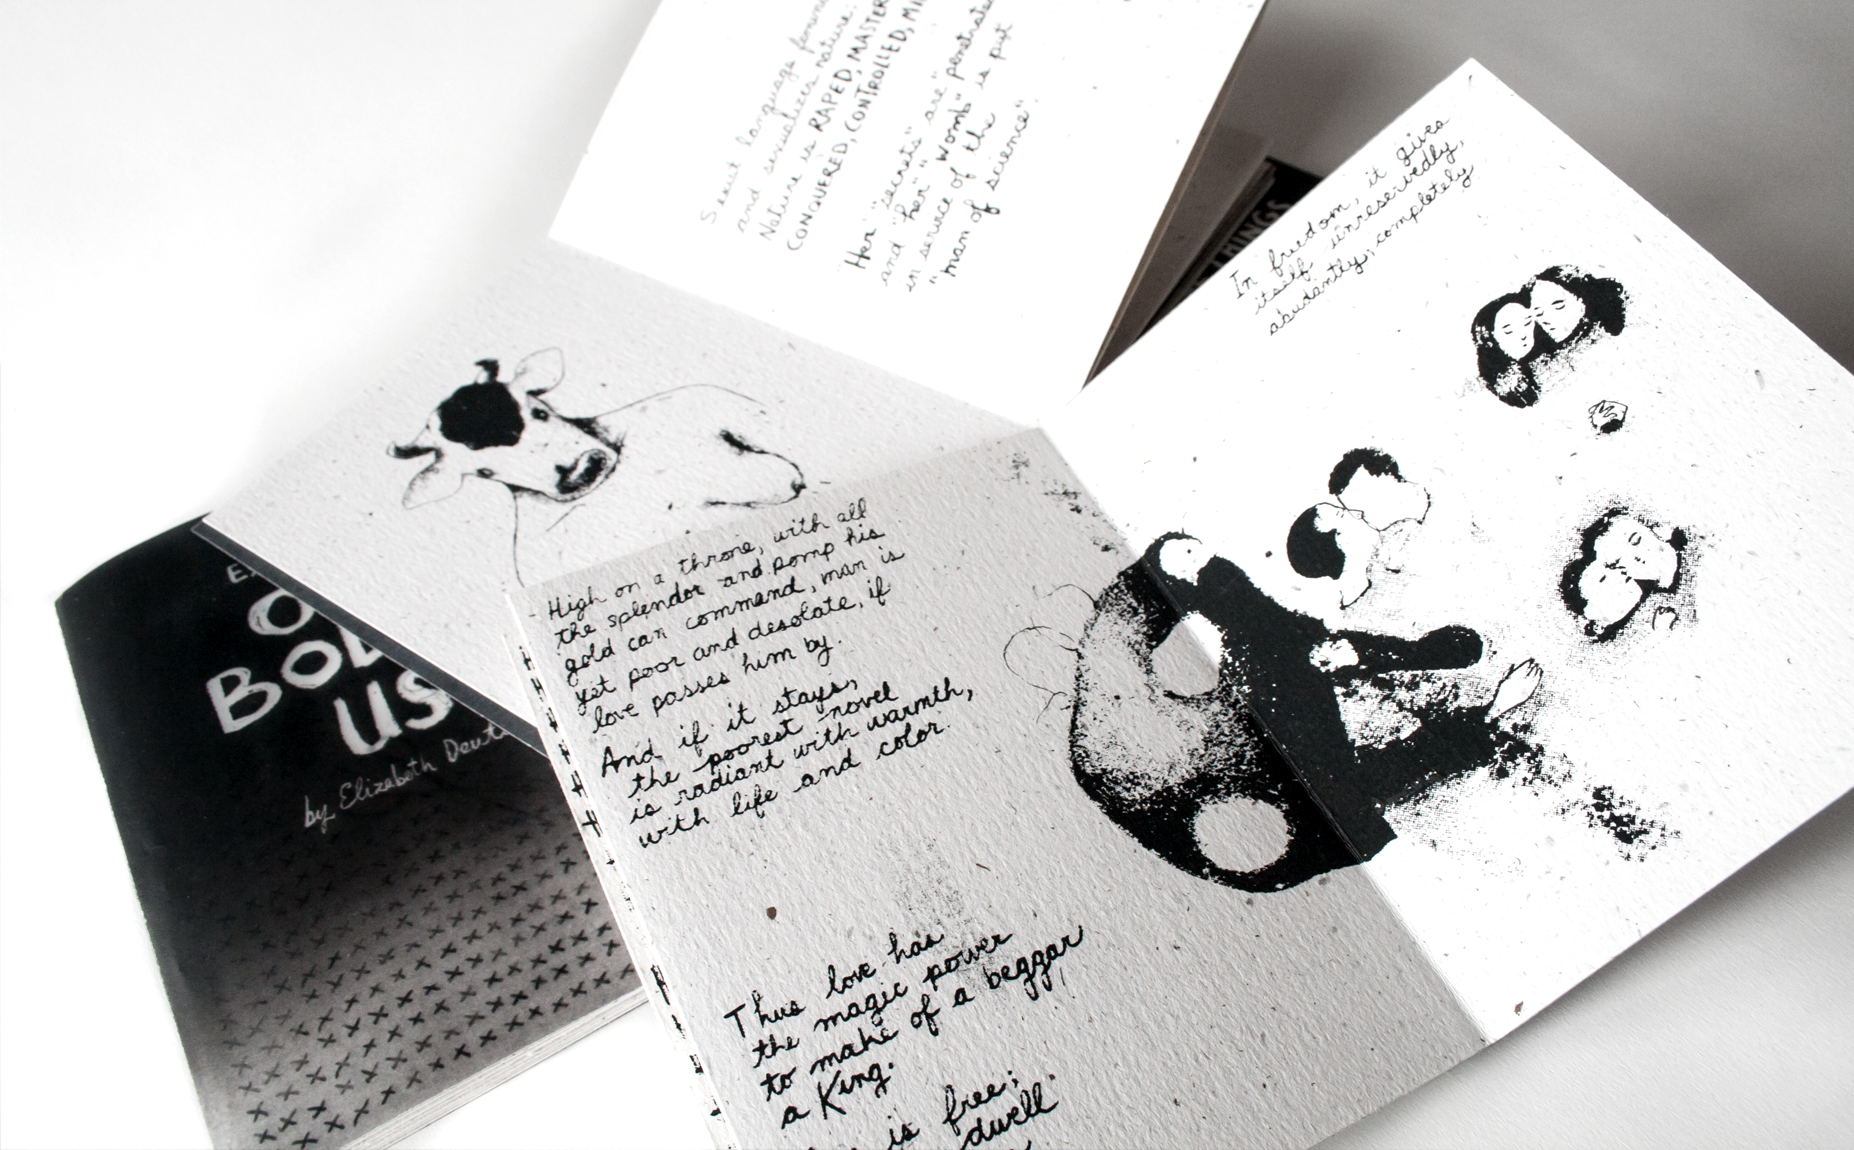 Sexist language
and sexualizes nature.
Nature is RAPED, MASTER
CONQUERED, CONTROLLED, MI
Her "secrets" are "penetrated"
and "her" "womb" is put
in service of the
"man of science".
THINGS
In freedom, it gives
itself unreservedly,
abudantly, completely
High on a throne, with all
the splendor and pomp his
gold can command, man is
yet poor and desolate, if
love passes him by.
And if it stays,
the poorest novel
is radiant with warmth,
with life and color.
Thus love has
the magic power
to make of a beggar
a King.
is free;
dwell
BO
US
by Elizabeth Deut